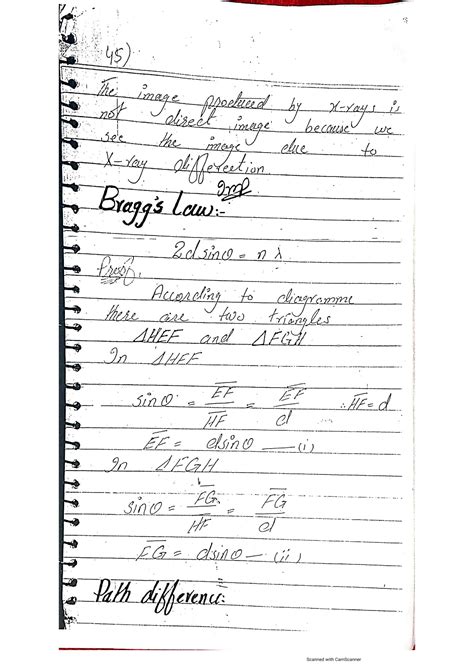 45)
The image produced by x-rays is
not direct image because we
see the image due to
X-ray differection.
Imp
Bragg's Law:-
2dsinθ = nλ
Proof.
According to diagramme
there are two triangles
ΔHEF and ΔFGH
In ΔHEF
sinθ = EF/HF = EF/d ∴ HF = d
EF = dsinθ —(i)
In ΔFGH
sinθ = FG/HF = FG/d
FG = dsinθ — (ii)
Path difference:
Scanned with CamScanner